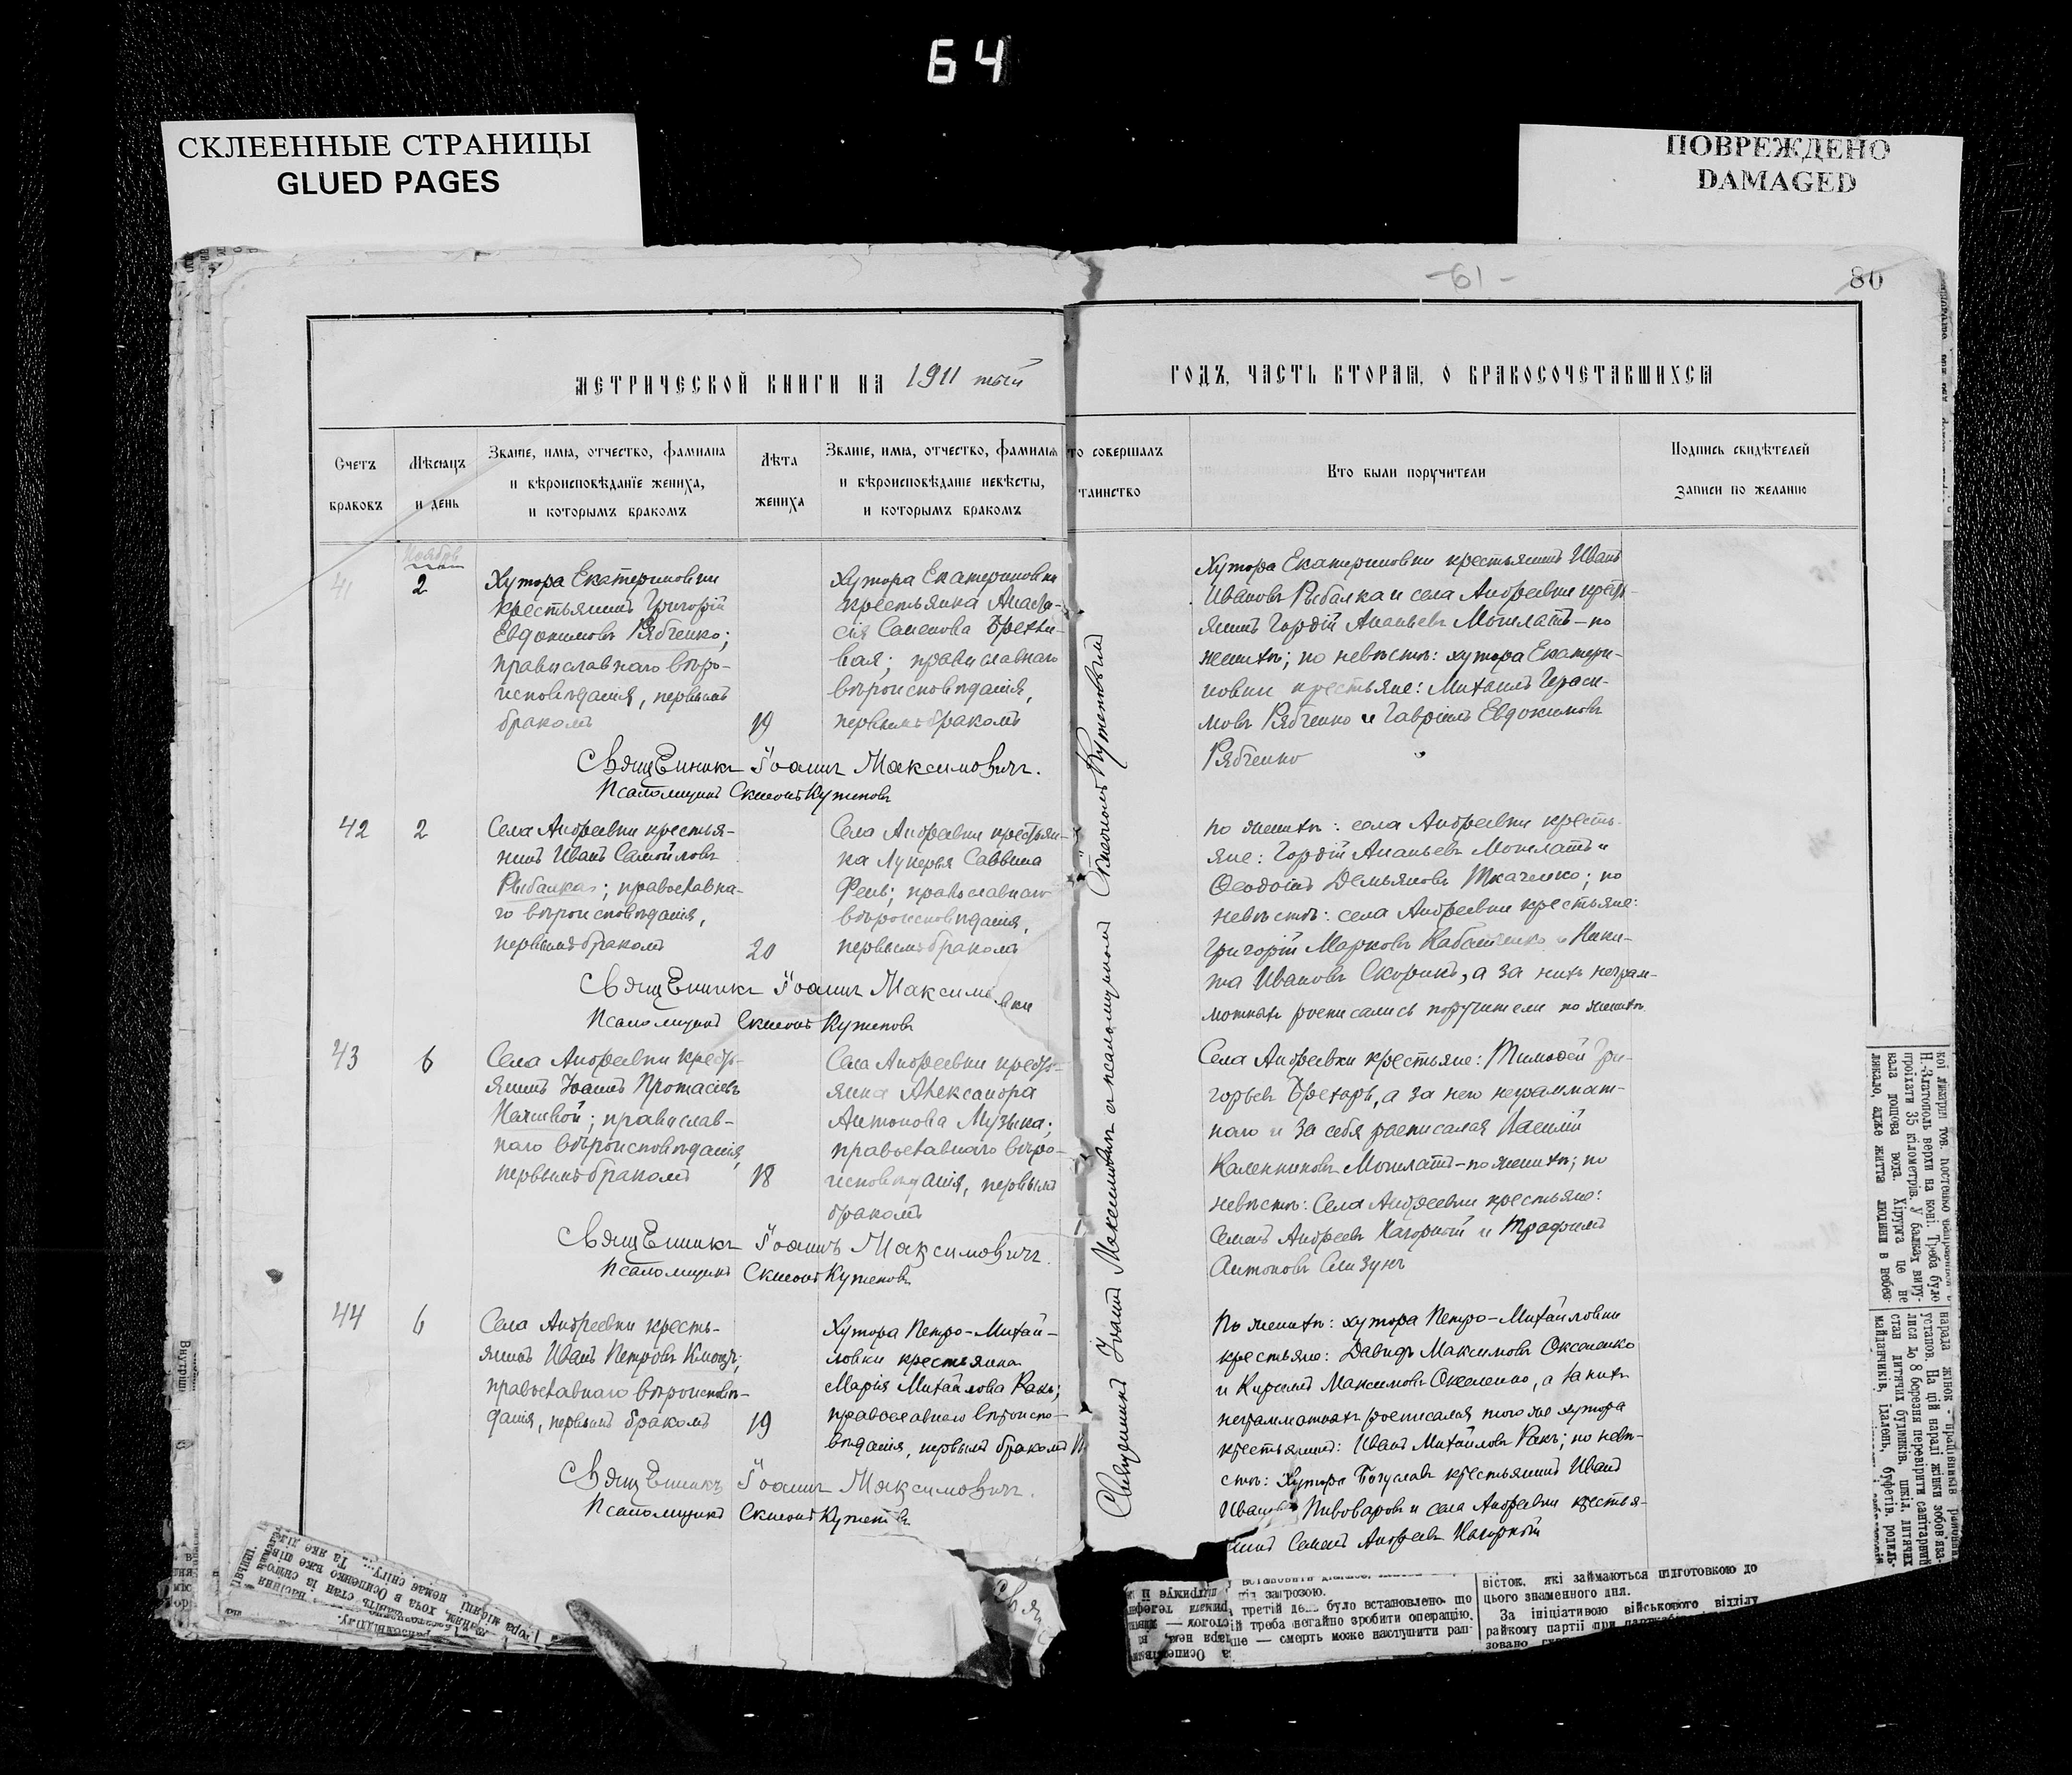 64
СКЛЕЕННЫЕ СТРАНИЦЫ
GLUED PAGES
ПОВРЕЖДЕНО
DAMAGED
-61-
80
МЕТРИЧЕСКОЙ КНИГИ НА 1911 тый
ГОДЪ, ЧАСТЬ ВТОРАЯ, О БРАКОСОЧЕТАВШИХСЯ
Счетъ
браковъ
Мѣсяцъ
и день
Званіе, имя, отчество, фамилія
и вѣроисповѣданіе жениха,
и которымъ бракомъ
Лѣта
жениха
Званіе, имя, отчество, фамилія
и вѣроисповѣданіе невѣсты,
и которымъ бракомъ
то совершалъ
таинство
Кто были поручители
Подпись свидѣтелей
записи по желанію
Ноябрь
41
2
Хутора Екатериновки
крестьянинъ Григорій
Евдокимовъ Рябченко;
православнаго вѣро-
исповѣданія, первымъ
бракомъ
19
Хутора Екатериновки
крестьянка Анаста-
сія Саменова
вая; православнаго
вѣроисповѣданія,
первымъ бракомъ
Хутора Екатериновки крестьянинъ Иванъ
Ивановъ Рыбалка и села Андреевки крест-
янинъ Гордій Ананьевъ Мошлатъ - по
женихѣ; по невѣстѣ: хутора Екатери-
новки крестьяне: Михаилъ Гераси-
мовъ Рябченко и Гавріилъ Евдокимовъ
Рябченко
Священникъ Іоаннъ Максимовичъ.
Псаломщикъ Симеонъ Кутеповъ
42
2
Села Андреевки крестья-
нинъ Иванъ Самойловъ
Рыбалка; православна-
го вѣроисповѣданія,
первымъ бракомъ
20
Села Андреевки крестьян-
ка Лукерья Саввина
Фень; православнаго
вѣроисповѣданія,
первымъ бракомъ
по женихѣ: села Андреевки кресть-
яне: Гордій Ананьевъ Мошлатъ и
Феодотъ Демьяновъ Ткаченко; по
невѣстѣ: села Андреевки крестьяне:
Григорій Марковъ и Ники-
та Ивановъ Скорикъ, а за нихъ неграм-
мотныхъ росписались поручители по женихѣ
Священникъ Іоаннъ
Псаломщикъ Симеонъ Кутеповъ
43
6
Села Андреевки крест-
янинъ Іоаннъ Протасіевъ
православ-
наго вѣроисповѣданія,
первымъ бракомъ
18
Села Андреевки крест-
янка Александра
Антонова Музыка;
православнаго вѣро-
исповѣданія, первымъ
бракомъ
Села Андреевки крестьяне: Тимофей Гри-
горьевъ а за него неграммат-
наго и за себя расписался Василій
Каленниковъ Мошлатъ - по женихѣ; по
невѣстѣ: Села Андреевки крестьяне:
Семенъ Андреевъ Нагорный и Трофимъ
Антоновъ Слизунъ
Священникъ Іоаннъ Максимовичъ.
Псаломщикъ Симеонъ Кутеповъ
44
6
Села Андреевки кресть-
янинъ Иванъ Петровъ
православнаго вѣроисповѣ-
данія, первымъ бракомъ
19
Хутора Петро-Михай-
ловки крестьянка
Марія Михайлова Ракъ;
православнаго вѣроиспо-
вѣданія, первымъ бракомъ
По женихѣ: хутора Петро-Михайловки
крестьяне: Давидъ Максимовъ Оксененко
и Кириллъ Максимовъ Оксененко, а за нихъ
неграммотныхъ росписался того же хутора
крестьянинъ: Иванъ Михайловъ Ракъ; по невѣ-
стѣ: Хутора Богуславъ крестьянинъ Иванъ
Ивановъ Пивоваровъ и села Андреевки крестья-
нинъ Семенъ Андреевъ Нагорный
Священникъ Іоаннъ Максимовичъ.
Псаломщикъ Симеонъ Кутеповъ
Священникъ Іоаннъ Максимовичъ и псаломщикомъ Симеономъ Кутеповымъ
під загрозою.
третій день було встановлено, що
ій треба негайно зробити операцію.
ше — смерть може наступити рап-
вісток, які займаються підготовкою до
цього знаменного дня.
За ініціативою військового відділу
Н.-Златополь верхи на коні. Треба було
проїхати 35 кілометрів. У балках виру-
вала полова вода. Хірурга це не
лякало, адже життя людини в небез-
нарада жінок - працівників
установ. На цій нараді жінки зобов'яза-
лися до 8 березня перевірити санітарний
стан дитячих будинків, шкіл, дитячих
майданчиків, їдалень, буфетів,